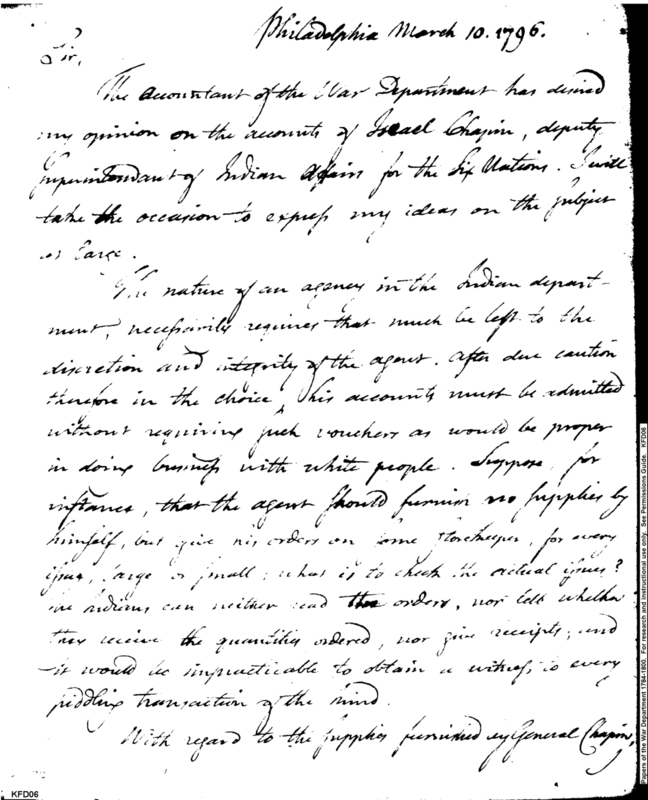 Philadelphia March 10. 1796.
Sir,
The accountant of the War Department has desired
my opinion on the accounts of Israel Chapin, deputy
Superintendant of Indian Affairs for the Six Nations. I will
take the occasion to express my ideas on the subject
at large.
The nature of an agency in the Indian depart-
ment, necessarily requires that much be left to the
discretion and integrity of the agent. After due caution
therefore in the choice, his accounts must be admitted
without requiring such vouchers as would be proper
in doing business with white people. Suppose, for
instance, that the agent should furnish no supplies by
himself, but give his orders on some storekeeper, for every
issue, large or small; what is to check the actual issues?
The Indians can neither read the orders, nor tell whether
they receive the quantities ordered, nor give receipts; and
it would be impracticable to obtain a witness to every
piddling transaction of the kind.
With regard to the supplies furnished by General Chapin,
KFD06
Papers of the War Department 1784-1800. For research and instructional use only. See Permissions Guide. KFD06